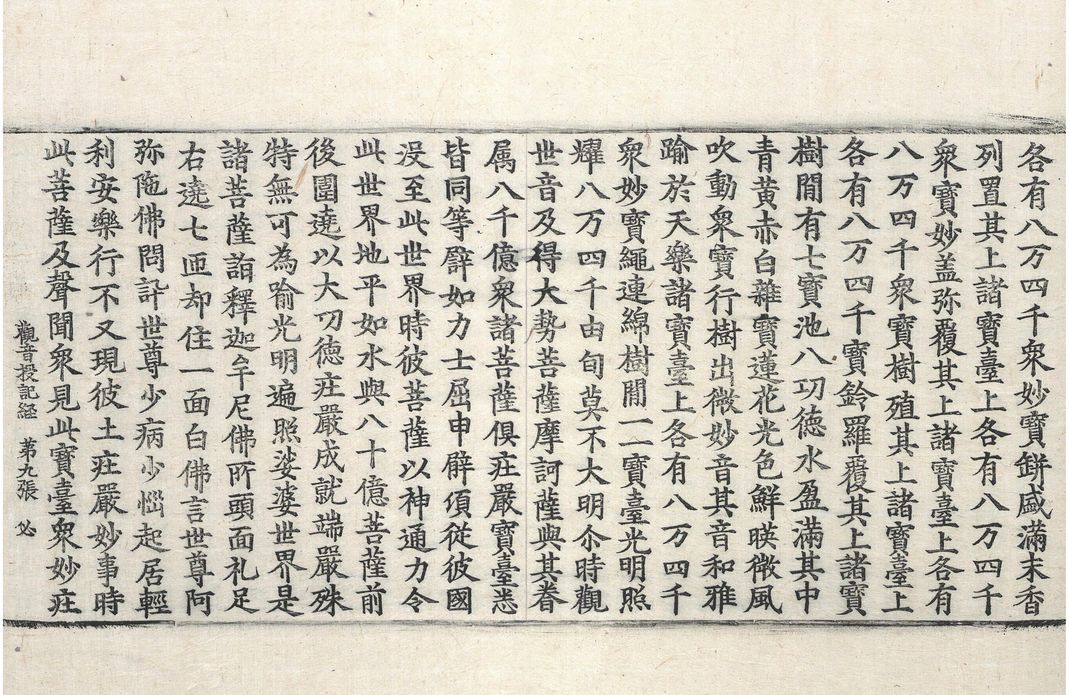 各有八万四千衆妙寶缾盛滿末香
列置其上諸寶臺上各有八万四千
衆寶妙盖弥覆其上諸寶臺上各有
八万四千衆寶樹殖其上諸寶臺上
各有八万四千寶鈴羅覆其上諸寶
樹閒有七寶池八功德水盈滿其中
青黄赤白雜寶蓮花光色鮮暎微風
吹動衆寶行樹出微妙音其音和雅
踰於天樂諸寶臺上各有八万四千
衆妙寶繩連綿樹閒一一寶臺光明照
耀八万四千由旬莫不大明尒時觀
世音及得大勢菩薩摩訶薩與其眷
属八千億衆諸菩薩俱疘嚴寶臺悉
皆同等譬如力士屈申臂須從彼國
没至此世界時彼菩薩以神通力令
此世界地平如水與八十億菩薩前
後圍遶以大功徳疘嚴成就端嚴殊
特無可為喻光明遍照娑婆世界是
諸菩薩詣釋迦牟尼佛所頭面礼足
右遶七匝却住一面白佛言世尊阿
弥陁佛問訊世尊少病少惱起居輕
利安樂行不又現彼土疘嚴妙事時
此菩薩及聲聞衆見此寶臺衆妙疘
觀音授記経 第九張 必